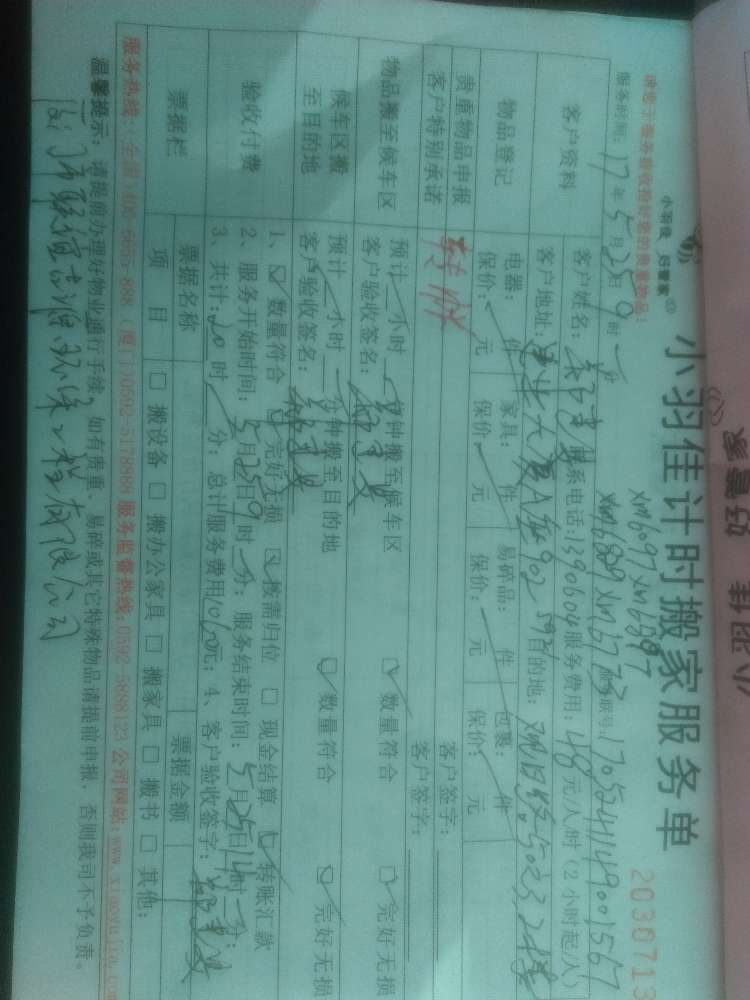 小羽佳计时搬家服务单
小羽佳 好管家
2030713
xm6097 xm6897
xm6889 xm3733
请您于服务验收指好您的贵重物品:
服务时间: 17年5月25日9时
单据号: 1705241149001567
客户资料
客户姓名:
联系电话: 1390604
服务费用: 48元/人/时(2小时起/人)
客户地址: 建业大厦A座902
目的地:
物品登记
电器: 件 家具: 件 易碎品: 件 包裹: 件
保价: 元 保价: 元 保价: 元 保价: 元
贵重物品申报
客户签字:
客户特别承诺
转账
客户签字:
物品搬至候车区
预计 小时 分钟搬至候车区
客户验收签名:
数量符合 完好无损
候车区搬至目的地
预计 小时 分钟搬至目的地
客户验收签名:
数量符合 完好无损
验收付费
1、数量符合 完好无损 按需归位 现金结算 转账汇款
2、服务开始时间: 5月25日9时 分; 服务结束时间: 5月25日14时 分;
3、共计: 20时 分; 总计服务费用 元; 4、客户验收签字:
票据栏
票据名称 票据金额
项目 搬设备 搬办公家具 搬家具 搬书 其他:
服务热线: 全国400-6655-888 (厦门)0592-5178888 服务监督热线:0592-5888123 公司网站:www.xiaoyujia.com
温馨提示: 请提前办理好物业通行手续, 如有贵重、易碎或其它特殊物品请提前申报, 否则我司不予负责。
厦门市联谊吉源环保工程有限公司